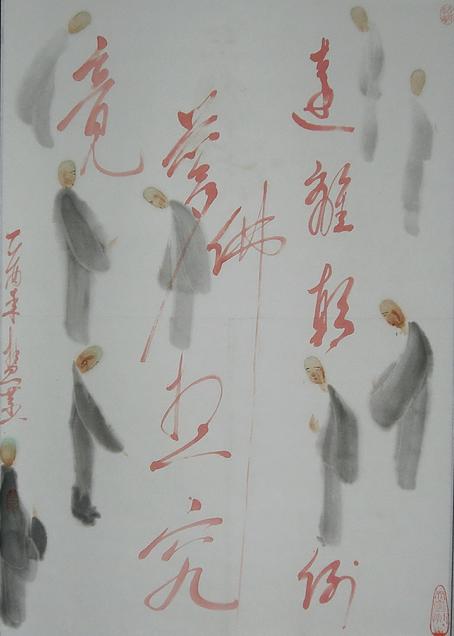 遠離顛倒
夢想究
竟
佛
乙酉年